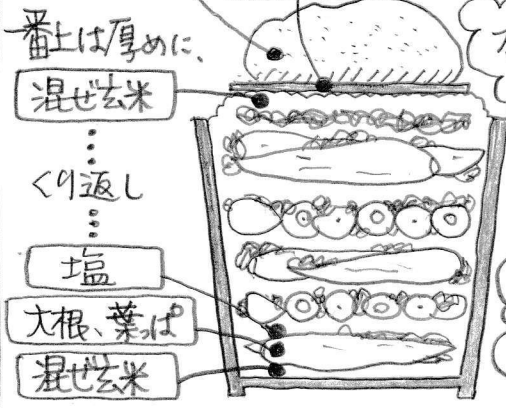 一番上は厚めに、
混ぜ玄米
くり返し
塩
大根、葉っぱ
混ぜ玄米